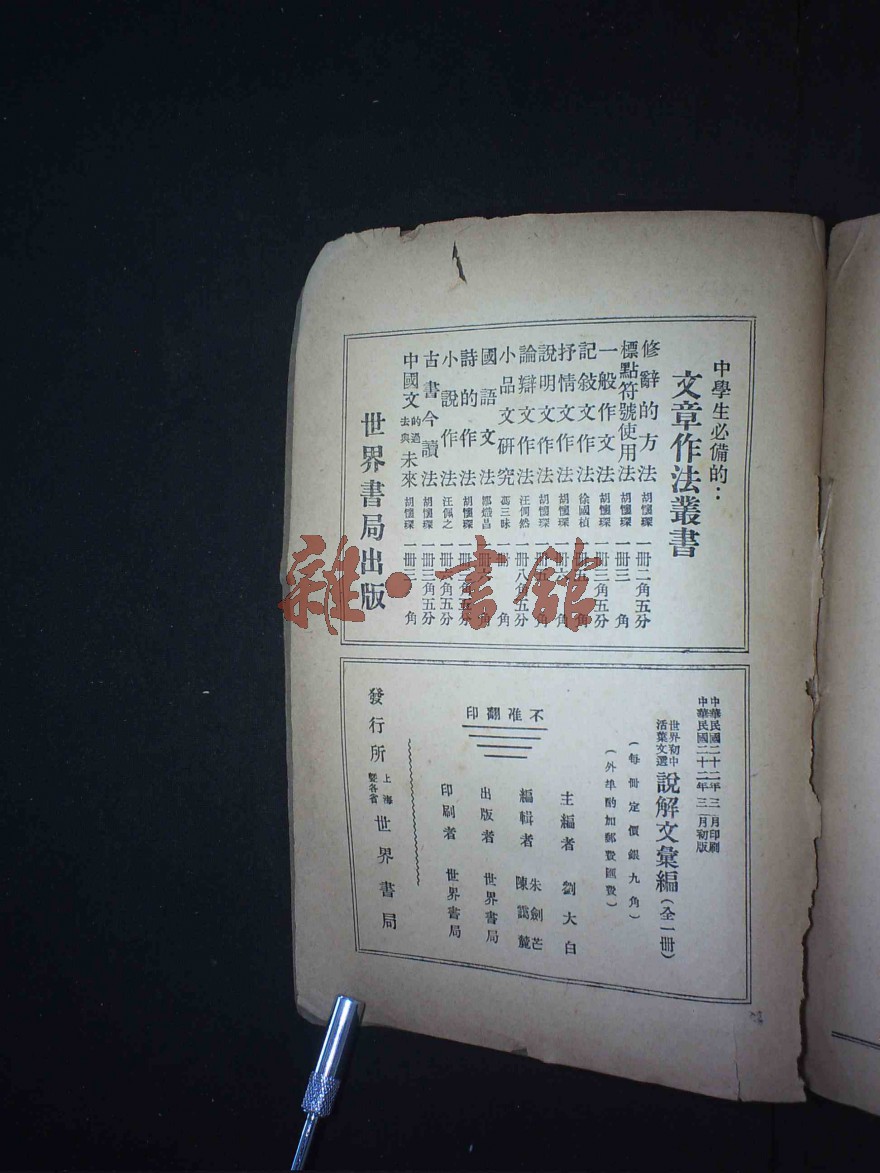 中學生必備的：
文章作法叢書
修辭的方法 胡懷琛 一冊二角五分
標點符號使用法 胡懷琛 一冊三角
一般作文法 胡懷琛 一冊三角五分
記敍文作法 徐國楨 一冊五角
抒情文作法 胡懷琛 一冊
說明文作法 胡懷琛 一冊五角
論辯文作法 汪倜然 一冊八角五分
小品文研究 馮三昧 一冊角
國語文法 鄒熾昌 一冊六角
詩的作法 胡懷琛 一冊五分
小說作法 汪佩之 一冊角五分
古書今讀法 胡懷琛 一冊三角五分
中國文的過去與未來 胡懷琛 一冊三角
世界書局出版
中華民國二十二年三月印刷
中華民國二十二年三月初版
世界初中活葉文選 說解文彙編（全一冊）
（每冊定價銀九角）
（外埠酌加郵費匯費）
不准翻印
主編者 劉大白
編輯者 朱劍芒 陳靄麓
出版者 世界書局
印刷者 世界書局
發行所 上海暨各省 世界書局
雜·書館